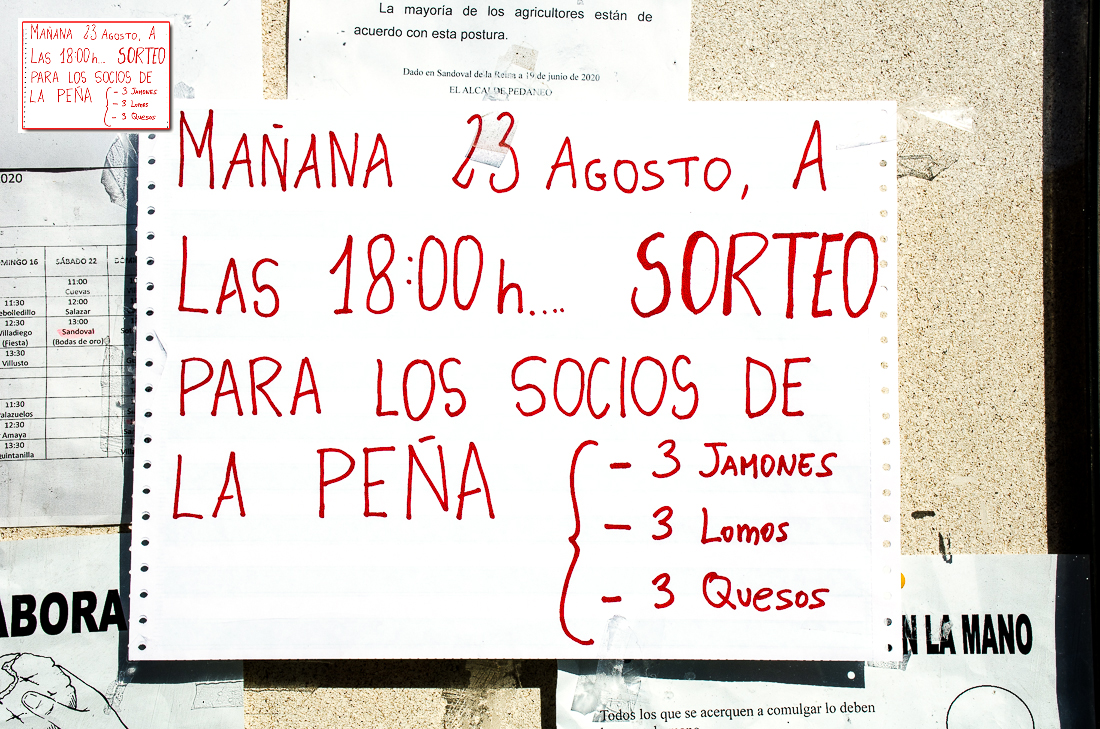 La mayoría de los agricultores están de
acuerdo con esta postura.
Dado en Sandoval de la Reina a 19 de junio de 2020
EL ALCALDE PEDANEO
MAÑANA 23 AGOSTO, A
LAS 18:00h... SORTEO
PARA LOS SOCIOS DE
LA PEÑA
- 3 JAMONES
- 3 LOMOS
- 3 QUESOS
MAÑANA 23 AGOSTO, A
LAS 18:00h.... SORTEO
PARA LOS SOCIOS DE
LA PEÑA
- 3 JAMONES
- 3 LOMOS
- 3 QUESOS
2020
MINGO 16 SÁBADO 22
11:00
Cuevas
11:30 12:00
ebolledillo Salazar
12:30 13:00
Villadiego Sandoval
(Fiesta) (Bodas de oro)
13:30
Villusto
11:30
alazuelos
12:30
Amaya
13:30
uintanilla
ABORA
N LA MANO
Todos los que se acerquen a comulgar lo deben